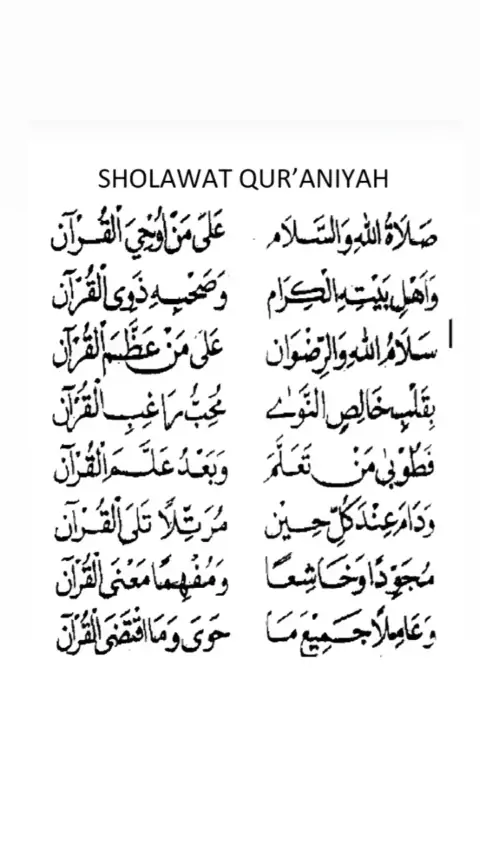 SHOLAWAT QUR’ANIYAH
صَلَاةُ اللهِ وَالسَّلَام عَلَى مَنْ اُوْحِيَ الْقُرْآن
وَاَهْلِ بَيْتِهِ الْكِرَام وَصَحْبِهِ ذَوِى الْقُرْآن
سَلَامُ اللهِ وَالرِّضْوَان عَلَى مَنْ عَظَّمَ الْقُرْآن
بِقَلْبٍ خَالِصِ النَّوٰى مُحِبُّ رَاغِبِ الْقُرْآن
فَطُوْبٰى مَنْ تَعَلَّمَ وَبَعْدُ عَلَّمَ الْقُرْآن
وَدَامَ عِنْدَ كُلِّ حِيْن مُرَتِّلًا تَلَى الْقُرْآن
مُجَوِّدًا وَخَاشِعًا وَمُفْهِمًا مَعْنَى الْقُرْآن
وَعَامِلًا جَمِيْعَ مَا حَوَى وَمَا اقْتَضَى الْقُرْآن